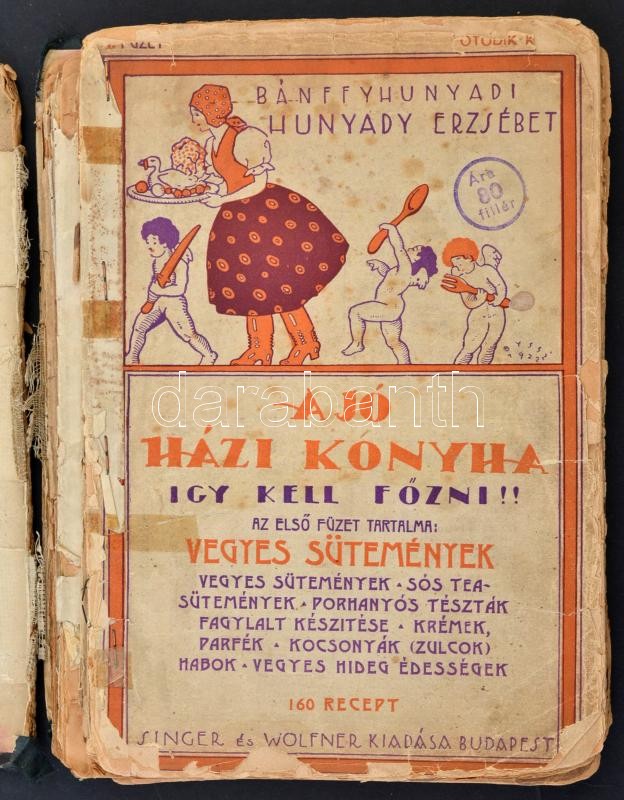 FÜZET
ÖTÖDIK K
BÁNFFYHUNYADI
HUNYADY ERZSÉBET
Ára
80
fillér
A JÓ
HÁZI KONYHA
IGY KELL FŐZNI!!
AZ ELSŐ FÜZET TARTALMA:
VEGYES SÜTEMÉNYEK
VEGYES SÜTEMÉNYEK • SÓS TEA-
SÜTEMÉNYEK • PORHANYÓS TÉSZTÁK
FAGYLALT KÉSZITÉSE • KRÉMEK,
PARFÉK • KOCSONYÁK (ZULCOK)
HABOK • VEGYES HIDEG ÉDESSÉGEK
160 RECEPT
SINGER és WOLFNER KIADÁSA BUDAPEST
darabanth